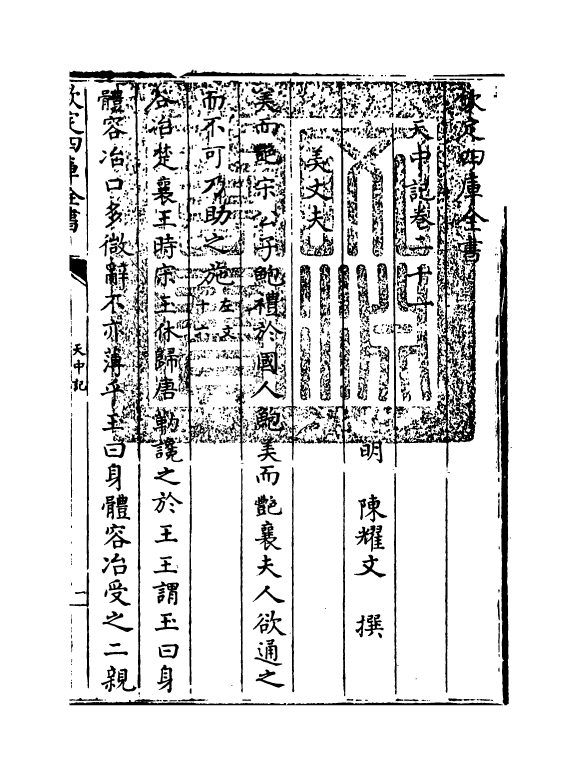 欽定四庫全書
天中記卷二十一
明 陳耀文 撰
美丈夫
美而艷宋公子鮑禮於國人鮑美而艷襄夫人欲通之
而不可乃助之施左文十六
容冶楚襄王時宋玉休歸唐勒讒之於王王謂玉曰身
體容冶口多微辭不亦薄乎玉曰身體容冶受之二親
欽定四庫全書
天中記